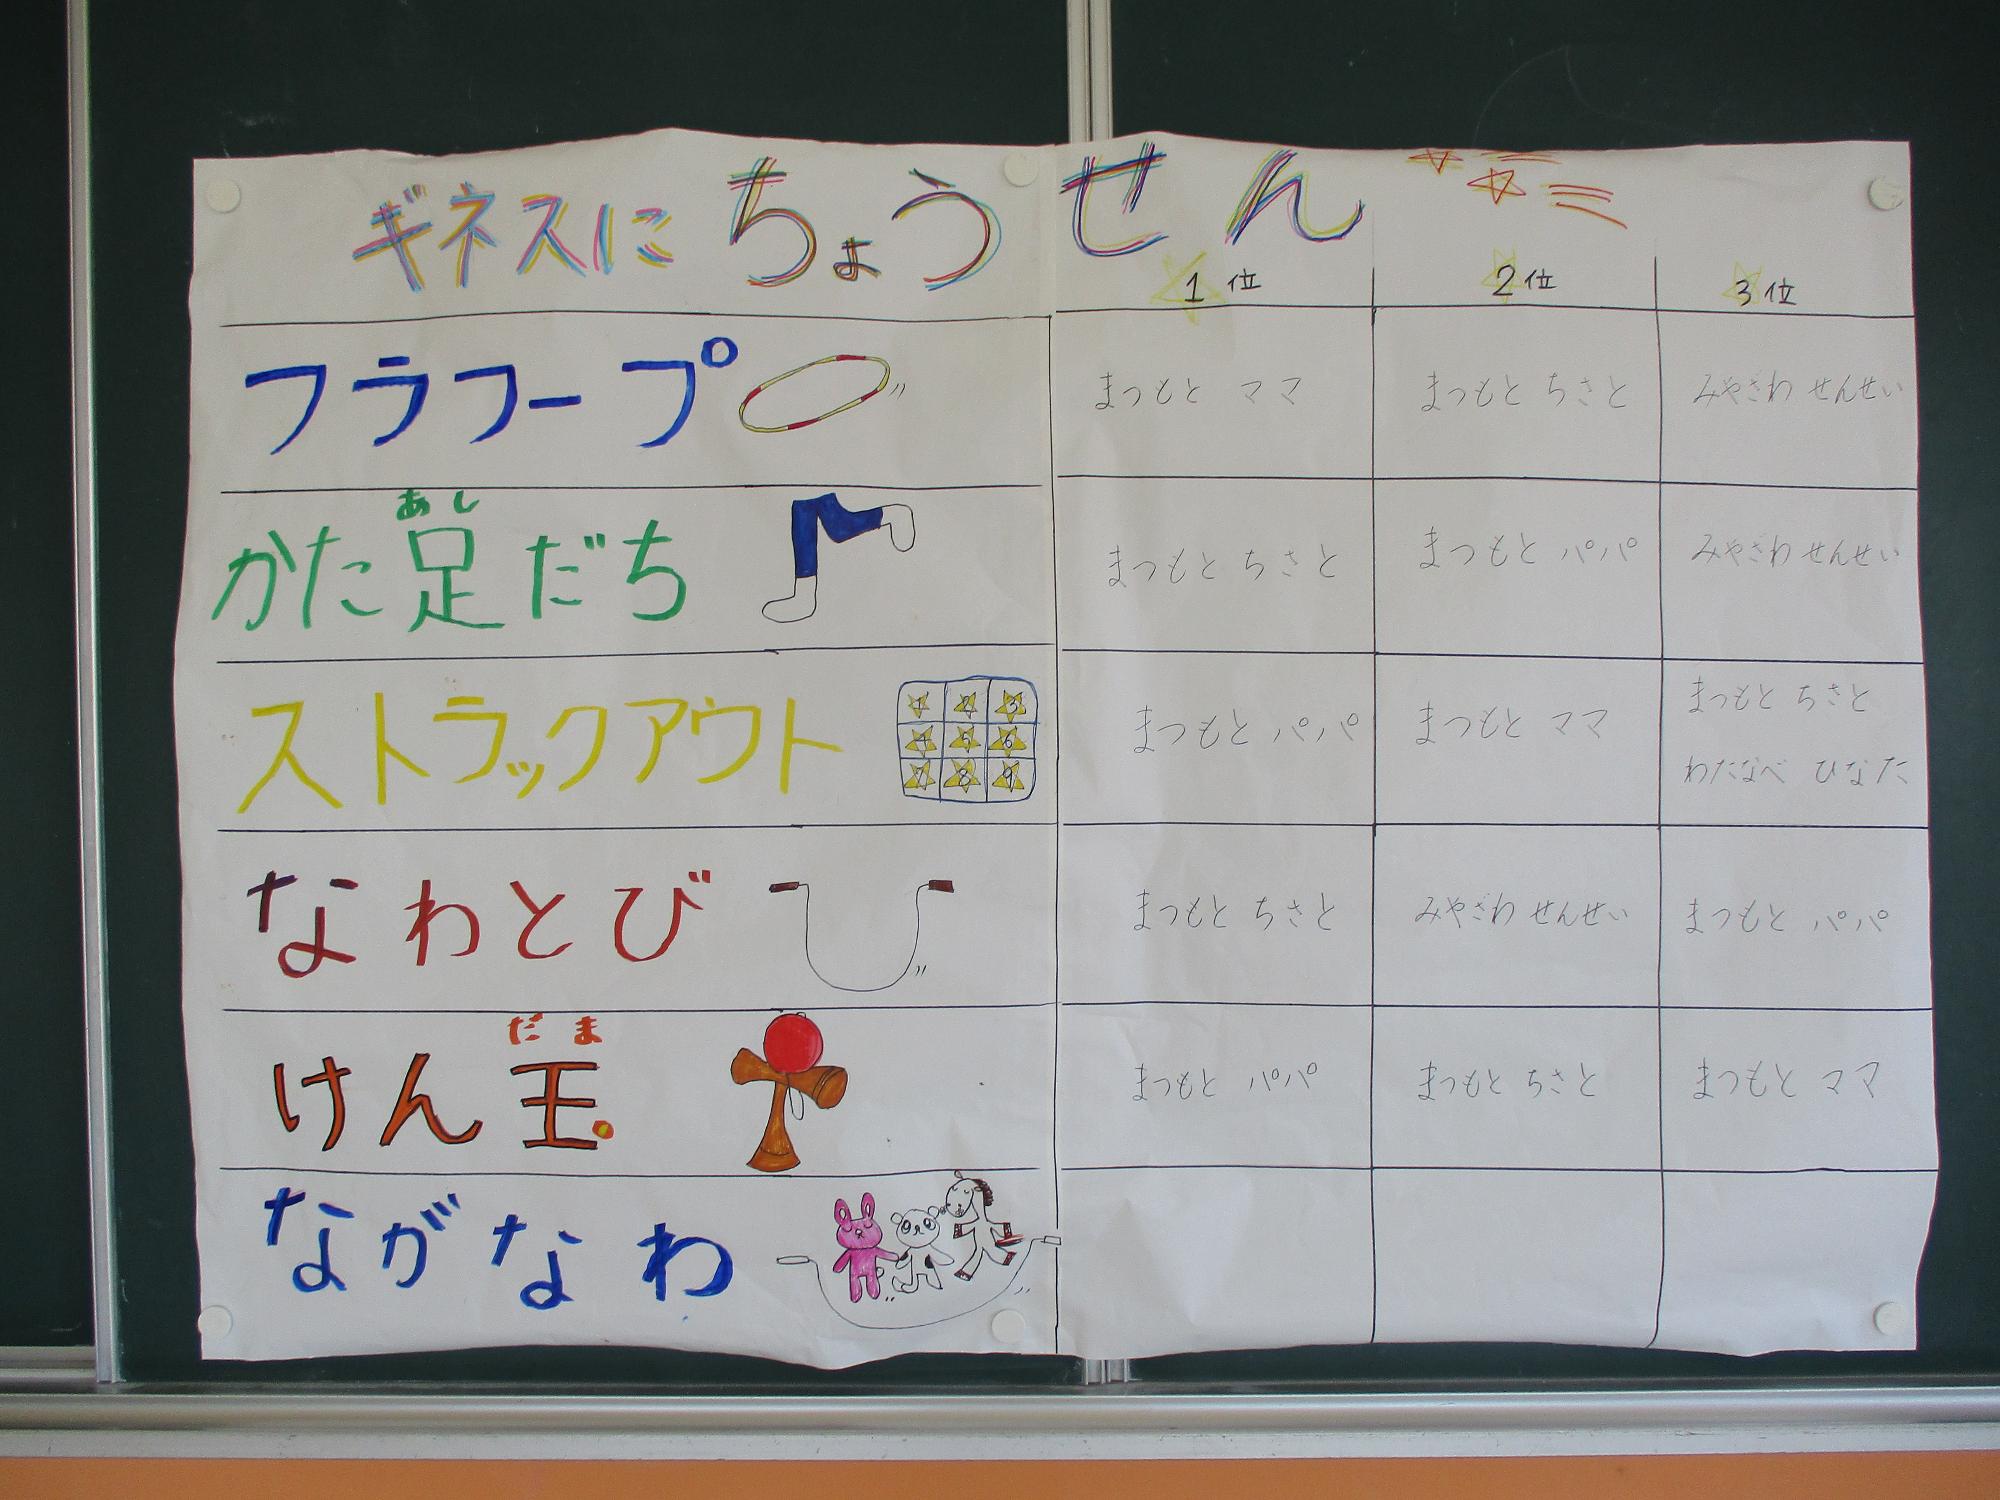 ギネスに ちょうせん
1位 2位 3位
フラフープ まつもと ママ まつもと ちさと みやざわ せんせい
あし
かた足だち まつもと ちさと まつもと パパ みやざわ せんせい
ストラックアウト まつもと パパ まつもと ママ まつもと ちさと
わたなべ ひなた
1 2 3
4 5 6
7 8 9
なわとび まつもと ちさと みやざわ せんせい まつもと パパ
だま
けん玉 まつもと パパ まつもと ちさと まつもと ママ
ながなわ